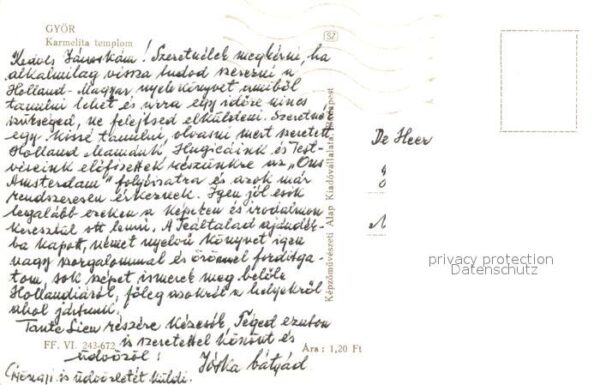 GYŐR
Karmelita templom
SZ
Kedves Jánoskám! Szeretnélek megkérni, ha
alkalmilag vissza tudod szerezni a
Holland-Magyar nyelvkönyvet amiből
tanulni lehet és arra egy időre nincs
szükséged, ne felejtsed elküldeni. Szeretnék
egy kissé tanulni, olvasni mert szeretett
Holland Mamánk Hugicáink és Test-
véreink előfizettek részünkre az "Ons
Amsterdam" folyóiratra és azok már
rendszeresen érkeznek. Igen jól esik
legalább ezeken a képeken és irodalmon
keresztül ott lenni. A Teáltalad ajándék-
ba kapott, német nyelvű könyvet igen
nagy szorgalommal és örömmel fordítga-
tom, sok szépet ismerek meg belőle
Hollandiáról, főleg azokról a helyekről
ahol jártunk.
Tante Sien részére kézcsók, Téged ezúton
is szeretettel köszönt és
üdvözöl! Jóska bátyád
is üdvözletét küldi.
De Heer
Képzőművészeti Alap Kiadóvállalata, Budapest
FF. VI. 243-672
Ára: 1,20 Ft
privacy protection
Datenschutz